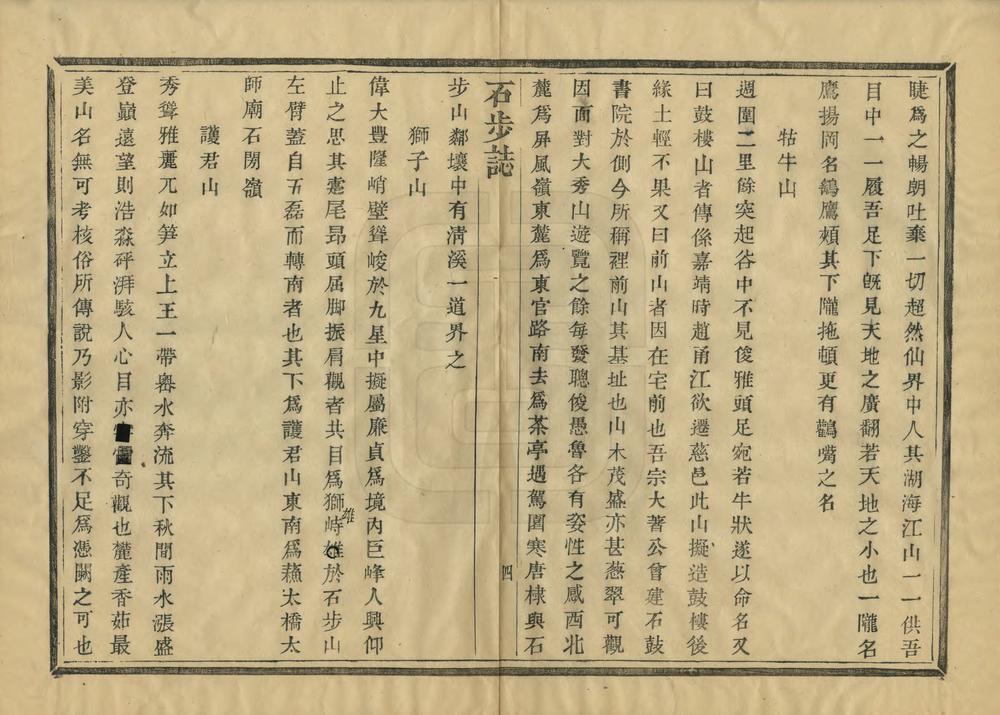 睫爲之暢朝吐乗一切超然仙界中人其湖海江山一一供吾
目中一一履吾足下旣見天地之廣翻若天地之小也一隴名
鷹揚岡名鷂鷹頰其下隴拖頓更有鸛嘴之名
牯牛山
週圍二里餘突起谷中不見俊雅頭足宛若牛狀遂以命名又
曰鼓樓山者傳係嘉靖時趙甬江欲遷慈邑此山擬造鼓樓後
緣土輕不果又曰前山者因在宅前也吾宗大著公曾建石鼓
書院於側今所稱裡前山其基址也山木茂盛亦甚葱翠可觀
因面對大秀山遊覽之餘每發聰俊愚魯各有姿性之感西北
麓爲屏風嶺東麓爲東官路南去爲茶亭遇駕園寒唐棣與石
石步誌
四
步山鄰壤中有淸溪一道界之
獅子山
偉大豐隆峭壁聳峻於九星中擬屬廉貞爲境內巨峰人興仰
止之思其疐尾昂頭屈脚振肩觀者共目爲獅峙雄於石步山
雄
左臂蓋自五磊而轉南者也其下爲護君山東南爲蘓太橋太
師廟石閉嶺
護君山
秀聳雅麗兀如笋立上王一帶磿水奔流其下秋間雨水漲盛
登巔遠望則浩淼砰湃駭人心目亦奇觀也麓產香茹最
美山名無可考核俗所傳說乃影附穿鑿不足爲憑闕之可也